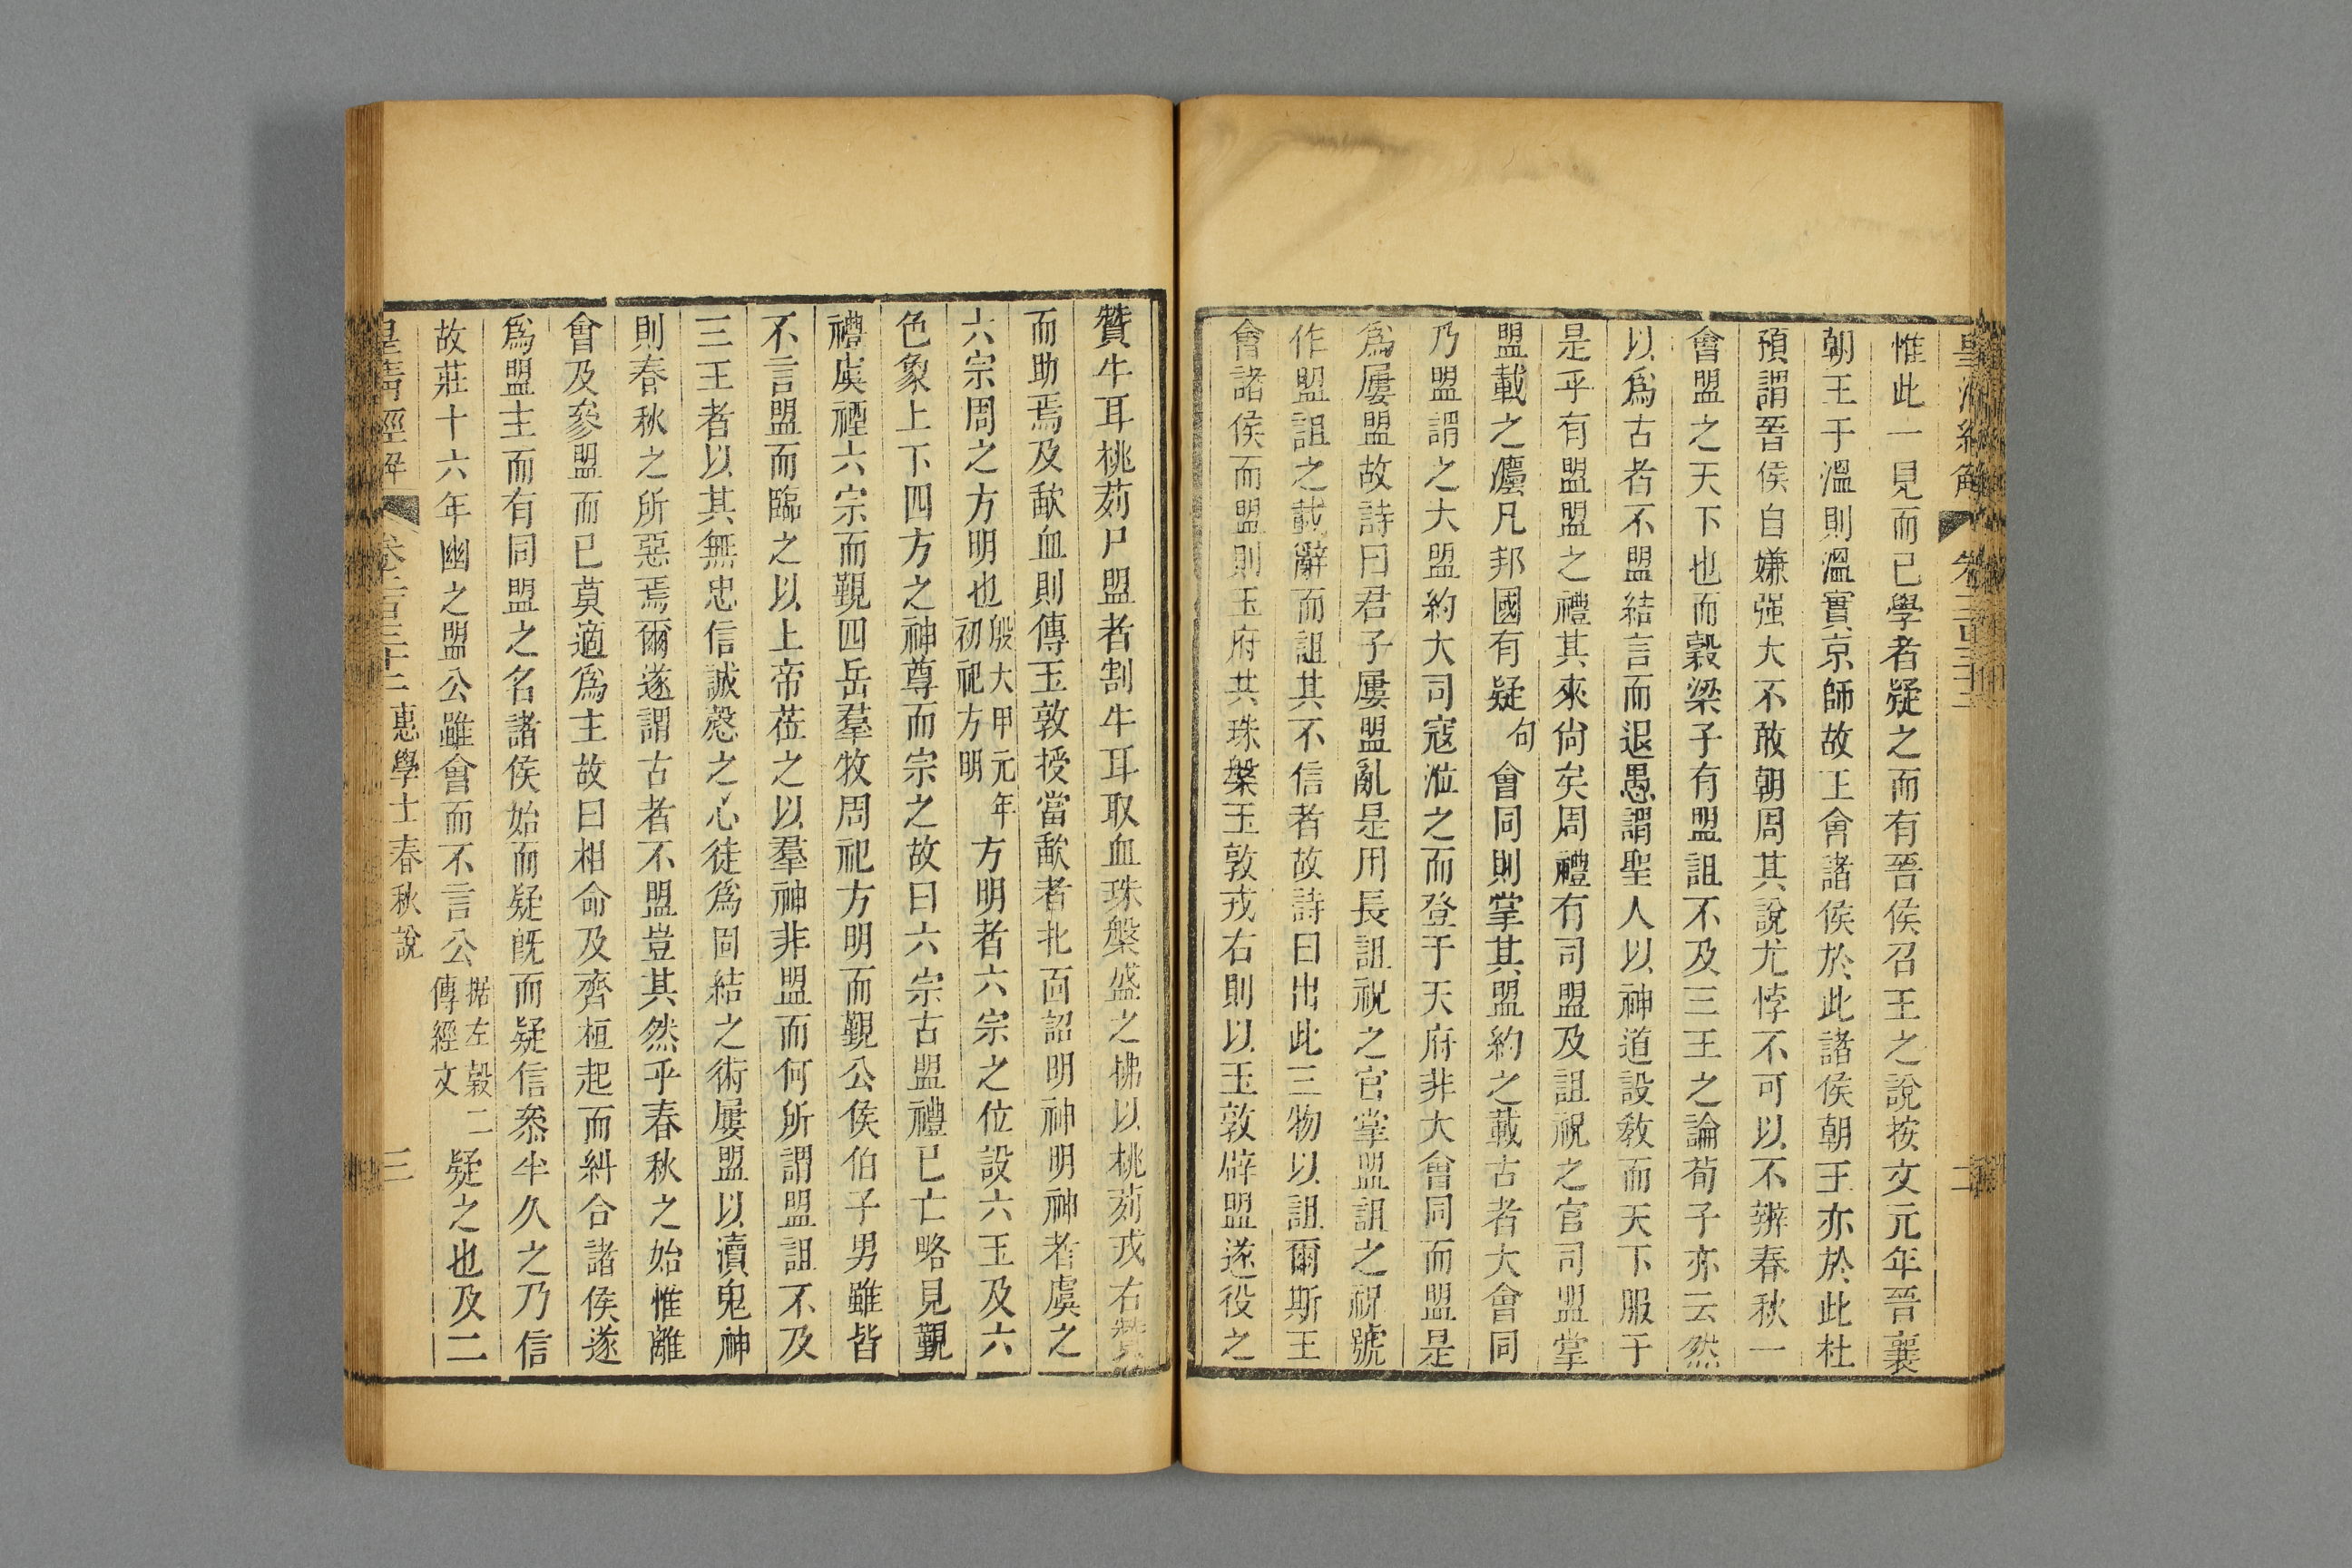 皇清經解 卷二百三十二 二
惟此一見而已學者疑之而有晉侯召王之說按文元年晉襄
朝王于溫則溫實京師故王會諸侯於此諸侯朝王亦於此杜
預謂晉侯自嫌强大不敢朝周其說尤悖不可以不辨春秋一
會盟之天下也而穀梁子有盟詛不及三王之論荀子亦云然
以爲古者不盟結言而退愚謂聖人以神道設敎而天下服于
是乎有盟盟之禮其來尙矣周禮有司盟及詛祝之官司盟掌
盟載之灋凡邦國有疑句會同則掌其盟約之載古者大會同
乃盟謂之大盟約大司寇涖之而登于天府非大會同而盟是
爲屢盟故詩曰君子屢盟亂是用長詛祝之官掌盟詛之祝號
作盟詛之載辭而詛其不信者故詩曰出此三物以詛爾斯王
會諸侯而盟則玉府共珠槃玉敦戎右則以玉敦辟盟遂役之
贊牛耳桃茢尸盟者割牛耳取血珠槃盛之拂以桃茢戎右贊
而助焉及歃血則傳玉敦授當歃者北面詔明神明神者虞之
六宗周之方明也殷大甲元年初祀方明方明者六宗之位設六玉及六
色象上下四方之神尊而宗之故曰六宗古盟禮已亡略見覲
禮虞禋六宗而覲四岳羣牧周祀方明而覲公侯伯子男雖皆
不言盟而臨之以上帝莅之以羣神非盟而何所謂盟詛不及
三王者以其無忠信誠慤之心徒爲固結之術屢盟以瀆鬼神
則春秋之所惡焉爾遂謂古者不盟豈其然乎春秋之始惟離
會及參盟而已莫適爲主故曰相命及齊桓起而糾合諸侯遂
爲盟主而有同盟之名諸侯始而疑旣而疑信叅半久之乃信
故莊十六年幽之盟公雖會而不言公据左穀二傳經文疑之也及二
皇清經解 卷二百三十二惠學士春秋說 三